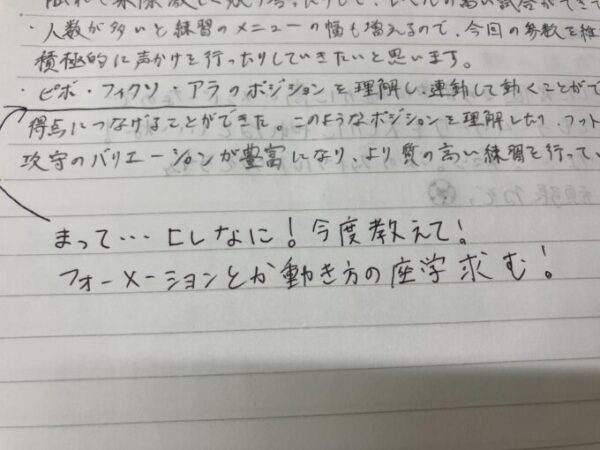 ・人数が多いと練習のメニューの幅も増えるので、今回の参数を維
積極的に声かけを行ったりしていきたいと思います。
・ピボ・フィクソ・アラのポジションを理解し、連動して動くことがで
得点につなげることができた。このようなポジションを理解したり、フット
攻守のバリエーションが豊富になり、より質の高い練習を行ってい
まって…ヒレなに！今度教えて！
フォーメーションとか動き方の座学求む！